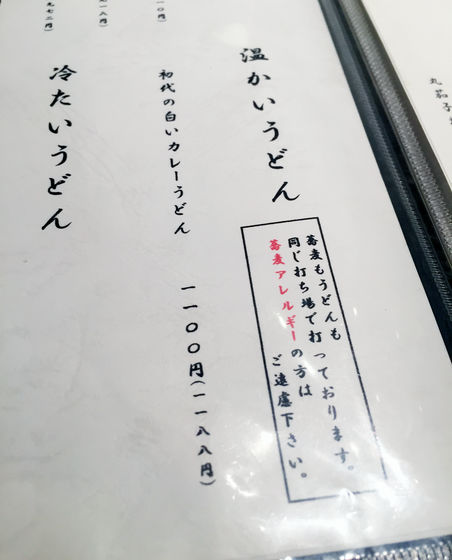 温かいうどん
蕎麦もうどんも
同じ打ち場で打っております。
蕎麦アレルギーの方は
ご遠慮下さい。
初代の白いカレーうどん
一一〇〇円（一一八八円）
冷たいうどん